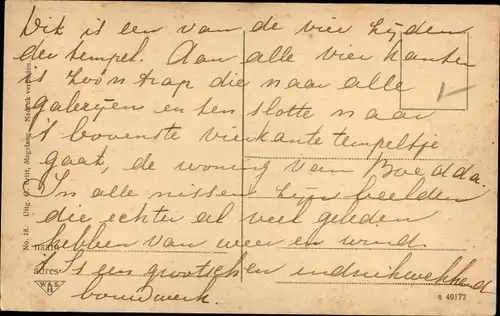 Dit is een van de vier zijden
der tempel. Aan alle vier kanten
is zoo'n trap die naar alle
galerijen en ten slotte naar
't bovenste vierkante tempeltje
gaat, de woning van Boedda.
In alle nissen zijn beelden
die echter al veel geleden
hebben van weer en wind.
't Is een grootschen indrukwekkend
bouwwerk.
naam
adres
No. 18. Uitg. Mageleng. Nadruk verboden.
W & S
H
s 49172